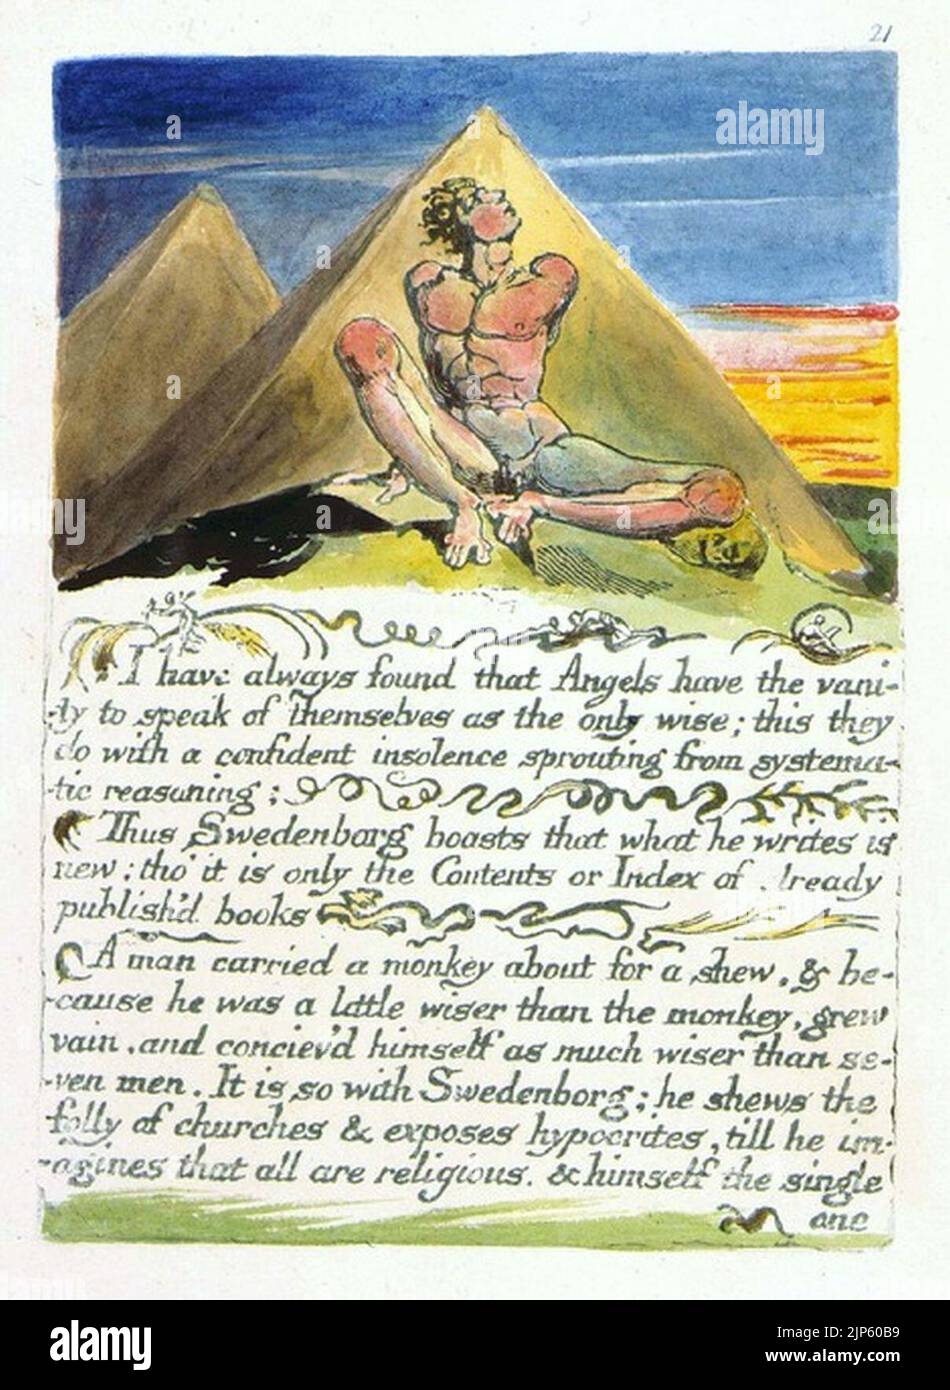 21
I have always found that Angels have the vani-
-ty to speak of themselves as the only wise; this they
do with a confident insolence sprouting from systema-
-tic reasoning;
Thus Swedenborg boasts that what he writes is
new; tho' it is only the Contents or Index of already
publish'd books
A man carried a monkey about for a shew, & be-
-cause he was a little wiser than the monkey, grew
vain, and conciev'd himself as much wiser than se-
-ven men. It is so with Swedenborg; he shews the
folly of churches & exposes hypocrites, till he im-
-agines that all are religious. & himself the single
one
a
a
a
a
alamy
Image ID: 2JP60B9
www.alamy.com